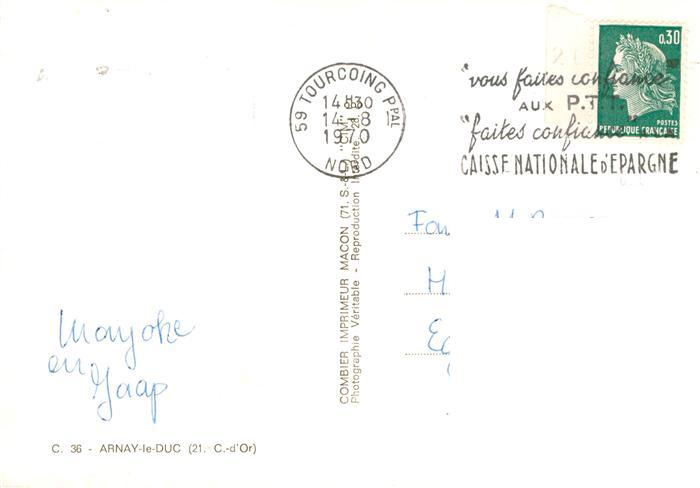 0,30
POSTES
REPUBLIQUE FRANCAISE
59 TOURCOING PPAL
14H30
14-8
1970
NORD
"vous faites confiance"
AUX P.T.T.
"faites confiance
CAISSE NATIONALE D'EPARGNE
COMBIER IMPRIMEUR MACON (71. S.-&-L.) "CIM"
Photographie Véritable - Reproduction Interdite
Fam
H
Eg
Marjoke
en
Jaap
C. 36 - ARNAY-le-DUC (21. C.-d'Or)